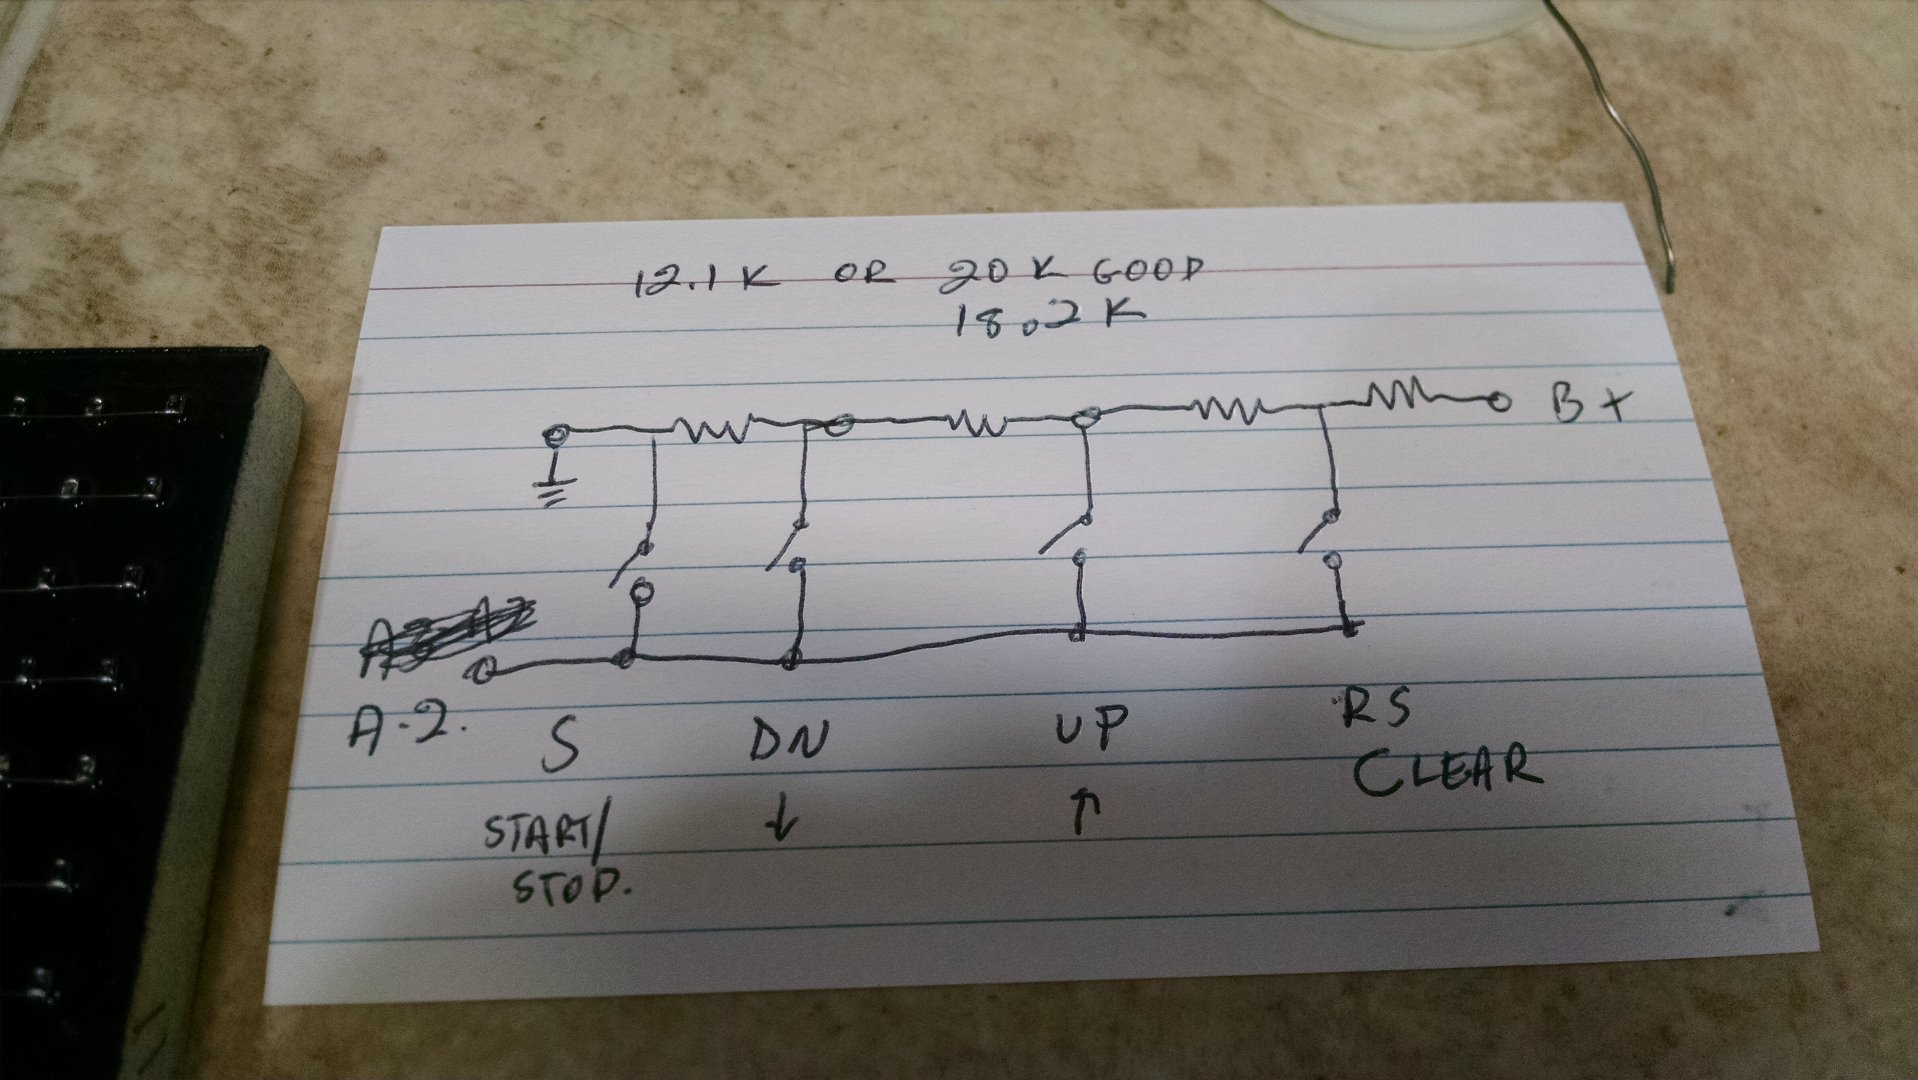 12.1K OR 20K GOOD
18.2K
B+
A-2. S DN UP RS
CLEAR
START/ ↓ ↑
STOP.